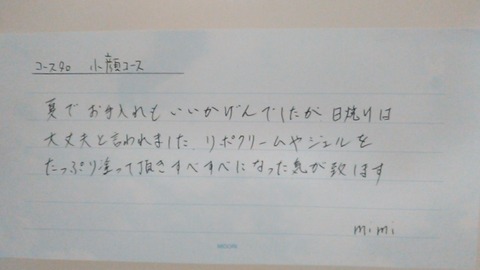 コース90 小顔コース
夏でお手入れもいいかげんでしたが日焼けは
大丈夫と言われました。リポクリームやジェルを
たっぷり塗って頂きすべすべになった気が致します
mimi
MIDORI